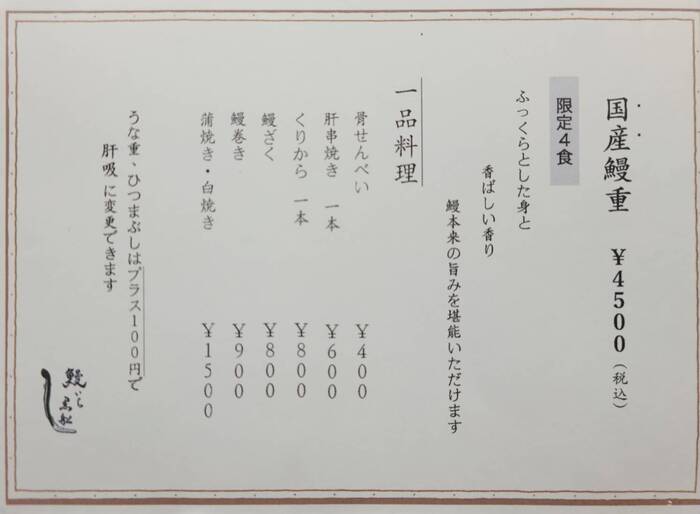 国産鰻重 ￥4500（税込）
限定4食
ふっくらとした身と
香ばしい香り
鰻本来の旨みを堪能いただけます
一品料理
骨せんべい ￥400
肝串焼き 一本 ￥600
くりから 一本 ￥800
鰻ざく ￥800
鰻巻き ￥900
蒲焼き・白焼き ￥1500
うな重、ひつまぶしはプラス100円で
肝吸に変更できます